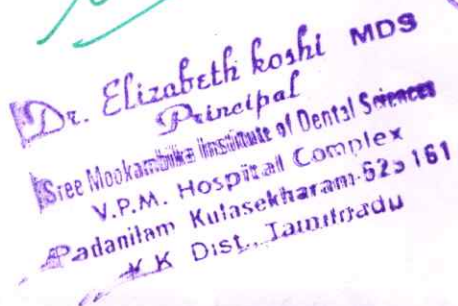 Dr. Elizabeth koshi MDS
Principal
Sree Mookambika Institute of Dental Sciences
V.P.M. Hospital Complex
Padanilam Kulasekharam-629 161
K K Dist., Tamilnadu